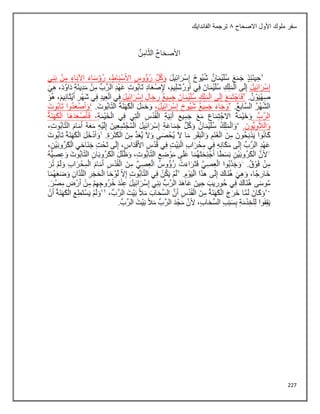 سفر ملوك الأول الاصحاح ٨ ترجمة الفاندايك
اَلأَصْحَاحُ الثَّامِنُ
١حِينَئِذٍ جَمَعَ سُلَيْمَانُ شُيُوخَ إِسْرَائِيلَ وَكُلَّ رُؤُوسِ الأَسْبَاطِ، رُؤَسَاءَ الآبَاءِ مِنْ بَنِي
إِسْرَائِيلَ إِلَى الْمَلِكِ سُلَيْمَانَ فِي أُورُشَلِيمَ، لإِصْعَادِ تَابُوتِ عَهْدِ الرَّبِّ مِنْ مَدِينَةِ دَاوُدَ، هِيَ
صِهْيَوْنُ. ٢فَاجْتَمَعَ إِلَى الْمَلِكِ سُلَيْمَانَ جَمِيعُ رِجَالِ إِسْرَائِيلَ فِي الْعِيدِ فِي شَهْرِ أَيْثَانِيمَ، هُوَ
الشَّهْرُ السَّابعُ. ٣وَجَاءَ جَمِيعُ شُيُوخِ إِسْرَائِيلَ، وَحَمَلَ الْكَهَنَةُ التَّابُوتَ. ٤وَأَصْعَدُوا تَابُوتَ
الرَّبِّ وَخَيْمَةَ الاجْتِمَاعِ مَعَ جَمِيعِ آنِيَةِ الْقُدْسِ الَّتِي فِي الْخَيْمَةِ، فَأَصْعَدَهَا الْكَهَنَةُ
وَاللاَّوِيُّونَ. ٥وَالْمَلِكُ سُلَيْمَانُ وَكُلُّ جَمَاعَةِ إِسْرَائِيلَ الْمُجْتَمِعِينَ إِلَيْهِ مَعَهُ أَمَامَ التَّابُوتِ،
كَانُوا يَذْبَحُونَ مِنَ الْغَنَمِ وَالْبَقَرِ مَا لاَ يُحْصَى وَلاَ يُعَدُّ مِنَ الْكَثْرَةِ. ٦وَأَدْخَلَ الْكَهَنَةُ تَابُوتَ
عَهْدِ الرَّبِّ إِلَى مَكَانِهِ فِي مِحْرَابِ الْبَيْتِ فِي قُدْسِ الأَقْدَاسِ، إِلَى تَحْتِ جَنَاحَيِ الْكَرُوبَيْنِ،
٧لأَنَّ الْكَرُوبَيْنِ بَسَطَا أَجْنِحَتَهُمَا عَلَى مَوْضِعِ التَّابُوتِ، وَظَلَّلَ الْكَرُوبَانِ التَّابُوتَ وَعِصِيَّهُ
مِنْ فَوْقُ. ٨وَجَذَبُوا الْعِصِيَّ فَتَرَاءَتْ رُؤُوسُ الْعِصِيِّ مِنَ الْقُدْسِ أَمَامَ الْمِحْرَابِ وَلَمْ تُرَ
خَارِجًا، وَهِيَ هُنَاكَ إِلَى هذَا الْيَوْمِ. ٩لَمْ يَكُنْ فِي التَّابُوتِ إِلاَّ لَوْحَا الْحَجَرِ اللَّذَانِ وَضَعَهُمَا
مُوسَى هُنَاكَ فِي حُورِيبَ حِينَ عَاهَدَ الرَّبُّ بَنِي إِسْرَائِيلَ عِنْدَ خُرُوجِهِمْ مِنْ أَرْضِ مِصْرَ.
١٠وَكَانَ لَمَّا خَرَجَ الْكَهَنَةُ مِنَ الْقُدْسِ أَنَّ السَّحَابَ مَلأَ بَيْتَ الرَّبِّ، ١١وَلَمْ يَسْتَطِعِ الْكَهَنَةُ أَنْ
يَقِفُوا لِلْخِدْمَةِ بِسَبَبِ السَّحَابِ، لأَنَّ مَجْدَ الرَّبِّ مَلأَ بَيْتَ الرَّبِّ.
227